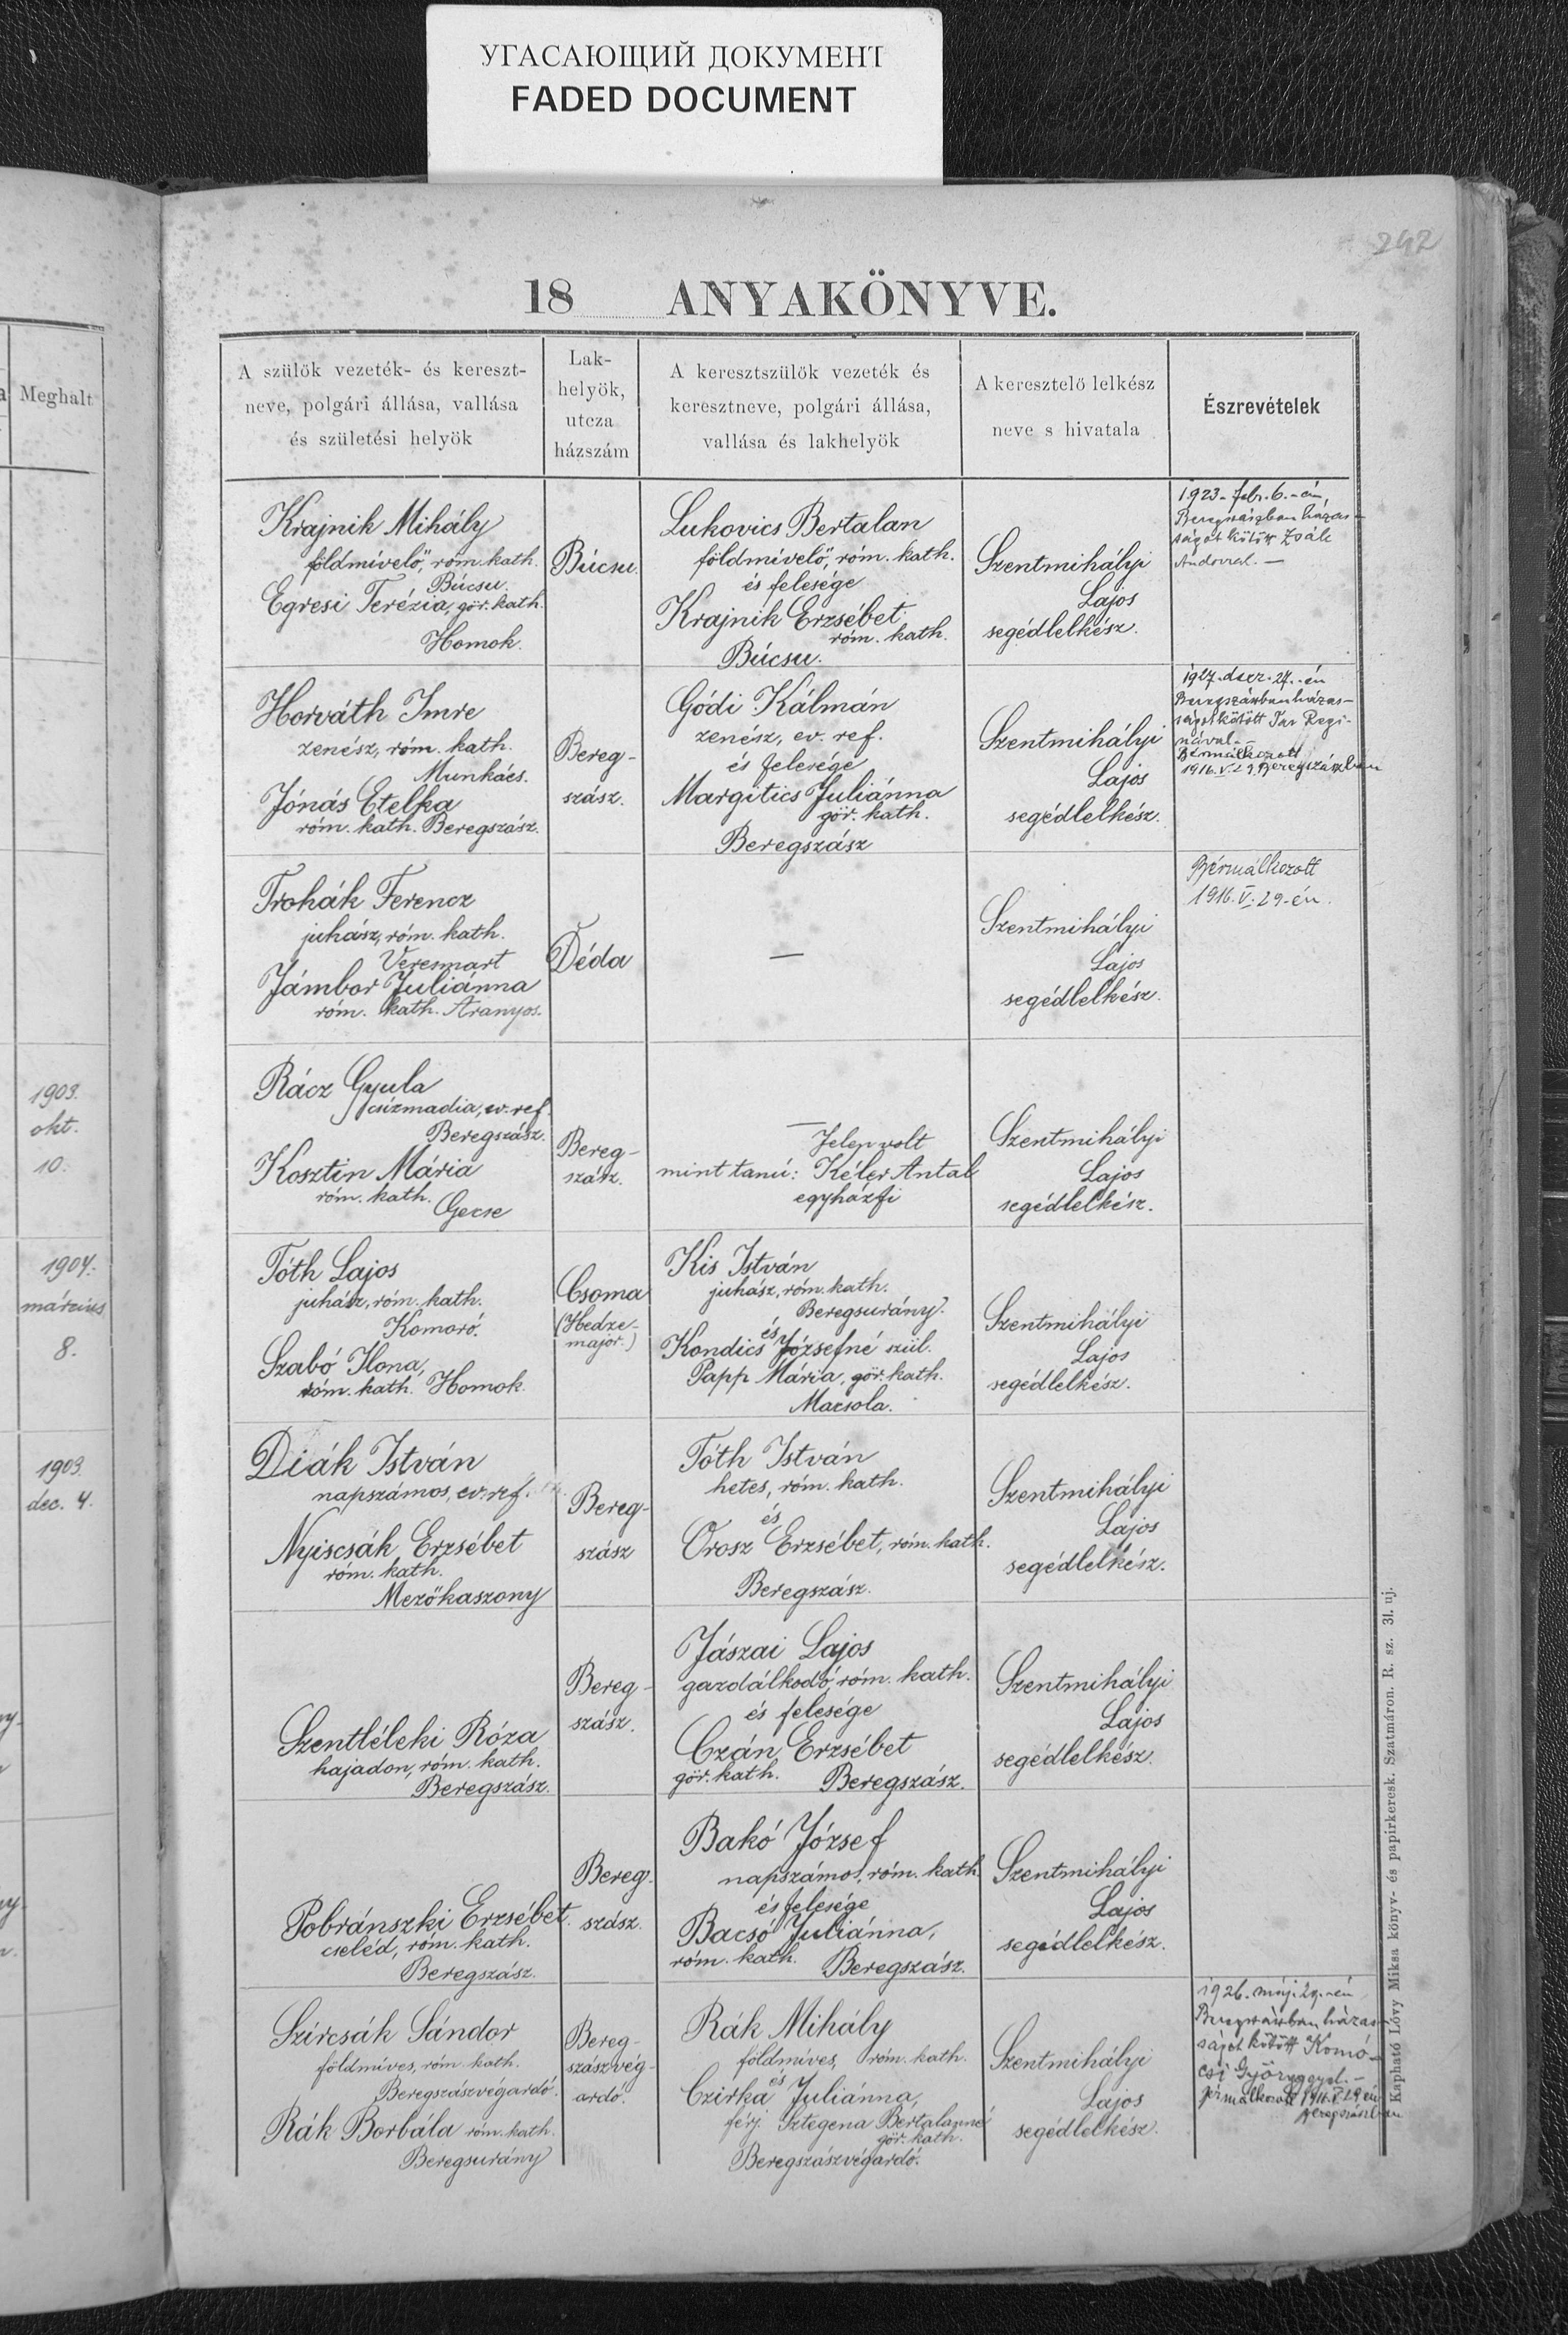 УГАСАЮЩИЙ ДОКУМЕНТ
FADED DOCUMENT
242
18 ANYAKÖNYVE.
Meghalt
1903.
okt.
10.
1904.
március
8.
1903.
dec. 4.
A szülők vezeték- és kereszt-
neve, polgári állása, vallása
és születési helyök
Lak-
helyök,
utcza
házszám
A keresztszülök vezeték és
keresztneve, polgári állása,
vallása és lakhelyök
A keresztelő lelkész
neve s hivatala
Észrevételek
Krajnik Mihály
földmívelő, róm. kath.
Búcsu.
Egresi Terézia, gör. kath.
Homok.
Búcsu.
Lukovics Bertalan
földmívelő, róm. kath.
és felesége
Krajnik Erzsébet
róm. kath.
Búcsu.
Szentmihályi
Lajos
segédlelkész.
1923. febr. 6.-án,
Beregszászban házas-
ságot kötött Zsák
Andorral. —
Horváth Imre
zenész, róm. kath.
Munkács.
Jónás Etelka
róm. kath. Beregszász.
Bereg-
szász.
Gódi Kálmán
zenész, ev. ref.
és felesége
Margitics Juliánna
gör. kath.
Beregszász
Szentmihályi
Lajos
segédlelkész.
1927. decz. 24.-én
Beregszászban házas-
ságot kötött Tar Regi-
nával. —
Bérmálkozott
1916. V. 29. Beregszászban
Trohák Ferencz
juhász, róm. kath.
Veresmart
Jámbor Juliánna
róm. kath. Aranyos.
Déda
—
Szentmihályi
Lajos
segédlelkész.
Bérmálkozott
1916. V. 29-én.
Rácz Gyula
csizmadia, ev. ref.
Beregszász.
Kosztin Mária
róm. kath.
Gecse
Bereg-
szász.
—
Jelen volt
mint tanú: Kéler Antal
egyházfi
Szentmihályi
Lajos
segédlelkész.
Tóth Lajos
juhász, róm. kath.
Komoró.
Szabó Ilona,
róm. kath. Homok.
Csoma
(Hedze-
major.)
Kis István
juhász, róm. kath.
Beregsurány.
és
Kondics Józsefné szül.
Papp Mária, gör. kath.
Macsola.
Szentmihályi
Lajos
segédlelkész.
Diák István
napszámos, ev. ref.
Nyiscsák Erzsébet
róm. kath.
Mezőkaszony
Bereg-
szász
Tóth István
hetes, róm. kath.
és
Orosz Erzsébet, róm. kath.
Beregszász.
Szentmihályi
Lajos
segédlelkész.
Szentléleki Róza
hajadon, róm. kath.
Beregszász.
Bereg-
szász.
Jászai Lajos
gazdálkodó, róm. kath.
és felesége
Czán Erzsébet
gör. kath. Beregszász.
Szentmihályi
Lajos
segédlelkész.
Pobránszki Erzsébet
cseléd, róm. kath.
Beregszász.
Bereg-
szász.
Bakó József
napszámos, róm. kath
és felesége
Bacsó Juliánna,
róm. kath. Beregszász.
Szentmihályi
Lajos
segédlelkész.
Szírcsák Sándor
földmíves, róm. kath.
Beregszászvégardó.
Rák Borbála róm. kath.
Beregsurány
Bereg-
szászvég-
ardó.
Rák Mihály
földmíves, róm. kath.
és
Czirka Juliánna,
férj. Sztegena Bertalanné
gör. kath.
Beregszászvégardó.
Szentmihályi
Lajos
segédlelkész.
1926. máj. 29.-én
Beregszászban házas-
ságot kötött Komó-
csi Györggyel. —
Bérmálkozott 1916. V. 29. én
Beregszászban
Kapható Lővy Miksa könyv- és papirkeresk. Szatmáron. R. sz. 31. uj.